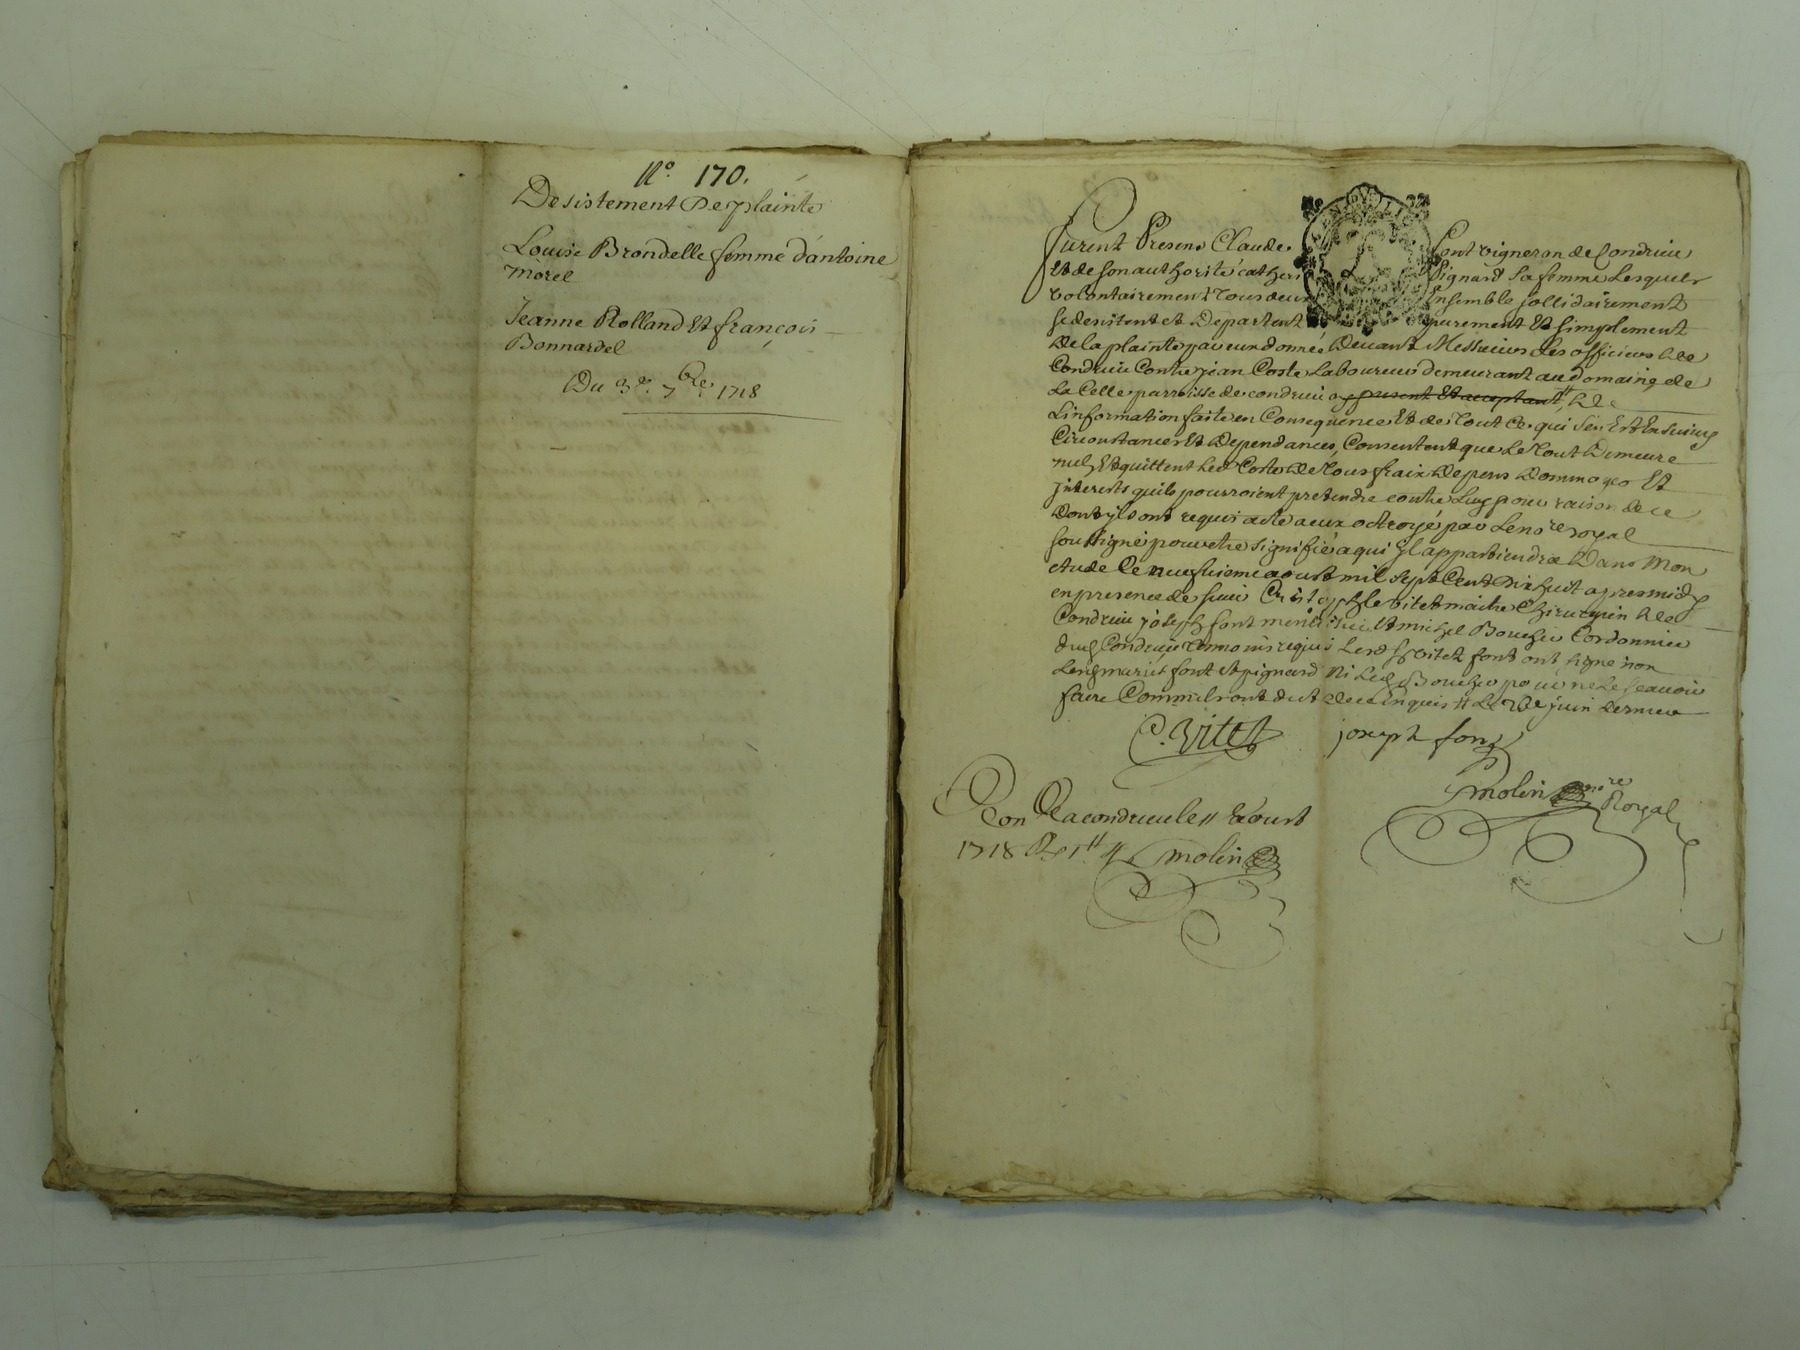 No. 170.
Desistement De plainte
Louise Brondelle femme d'antoine
morel
Jeanne Rolland Et françois
Bonnardel
Du 3e. 7bre. 1718
furent Presens Claude font vigneron de Condrieu
Et de son authorité catherine pignard sa femme Lesquels
volontairement tous deux Ensemble sollidairement
se desistent et Departent purement Et simplement
de la plainte par eux donnée Devant Messieurs les officiers de
Condrieu Contre jean Coste Laboureur demeurant au domaine de
La Celle parroisse de condrieu present Et acceptant de
L'information faite en Consequence Et de Tout Ce qui s'en Est Ensuivy
Circonstances Et Dependances, Consentent que Le Tout Demeure
nul, Et quittent Led Coste de Tous fraix depens dommages Et
jnterests quils pourroient pretendre contre Luy pour raison de ce
dont ils ont requis acte a eux octroyé par Le nore royal
soussigné pour etre signiffié a qui Il appartiendra Dans Mon
etude Le neufvieme aoust mil sept Cent Dix huit apres midy
en presence de sieur Cristophle vitet maitre Chirurgien de
Condrieu joseph font Et michel Boucher Cordonnier
dud Condrieu Temoins requis Lesd sr vitet font ont signé non
Lesd mariés font et pignard Ni Led Boucher pour ne Le scavoir
faire Comm'ils ont dit de ce enquis juin dernier
C. Vitet joseph font
Molin nore Royal
Con le a condrieu le 11 Aoust
1718 Molin